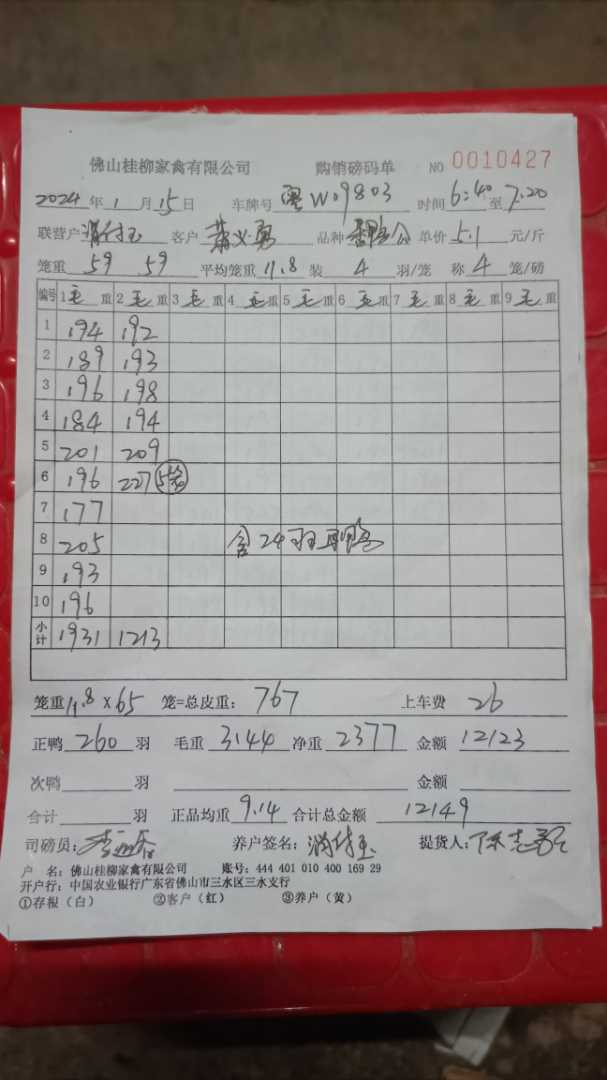 佛山桂柳家禽有限公司 购销磅码单 NO 0010427
2024年1月15日 车牌号 粤W09803 时间6:40至7:20
联营户 客户 萧义勇 品种 公 单价5.1元/斤
笼重 59 59 平均笼重11.8装 4 羽/笼 称4笼/磅
编号 1毛重 2毛重 3毛重 4毛重 5毛重 6毛重 7毛重 8毛重 9毛重
1 194 192
2 189 193
3 196 198
4 184 194
5 201 209
6 196 227 5笼
7 177
8 205 含24羽
9 193
10 196
小计 1931 1213
笼重11.8×65笼=总皮重:767 上车费 26
正鸭 260 羽 毛重 3144 净重 2377 金额 12123
次鸭 羽 金额
合计 羽 正品均重 9.14 合计总金额 12149
司磅员: 养户签名: 提货人:
户 名:佛山桂柳家禽有限公司 账号:444 401 010 400 169 29
开户行:中国农业银行广东省佛山市三水区三水支行
①存根(白) ②客户(红) ③养户(黄)